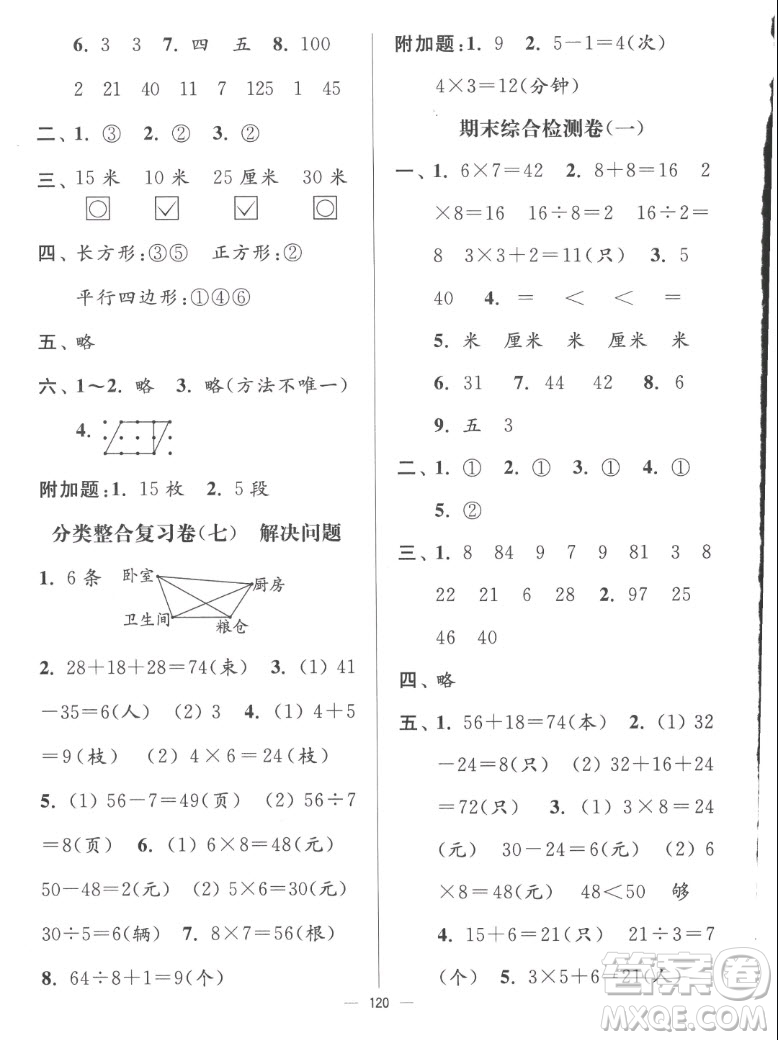 6. 3 3 7. 四 五 8. 100
2 21 40 11 7 125 1 45
二、1. ③ 2. ② 3. ②
三、15 米 10 米 25 厘米 30 米
四、长方形:③⑤ 正方形:②
平行四边形:①④⑥
五、略
六、1～2. 略 3. 略(方法不唯一)
4.
附加题:1. 15 枚 2. 5 段
分类整合复习卷(七) 解决问题
1. 6 条 卧室 厨房
卫生间 粮仓
2. 28+18+28=74(束) 3. (1) 41
-35=6(人) (2) 3 4. (1) 4+5
=9(枝) (2) 4×6=24(枝)
5. (1) 56-7=49(页) (2) 56÷7
=8(页) 6. (1) 6×8=48(元)
50-48=2(元) (2) 5×6=30(元)
30÷5=6(辆) 7. 8×7=56(根)
8. 64÷8+1=9(个)
附加题:1. 9 2. 5-1=4(次)
4×3=12(分钟)
期末综合检测卷(一)
一、1. 6×7=42 2. 8+8=16 2
×8=16 16÷8=2 16÷2=
8 3×3+2=11(只) 3. 5
40 4. = < < =
5. 米 厘米 米 厘米 米
6. 31 7. 44 42 8. 6
9. 五 3
二、1. ① 2. ① 3. ② 4. ①
5. ②
三、1. 8 84 9 7 9 81 3 8
22 21 6 28 2. 97 25
46 40
四、略
五、1. 56+18=74(本) 2. (1) 32
-24=8(只) (2) 32+16+24
=72(只) 3. (1) 3×8=24
(元) 30-24=6(元) (2) 6
×8=48(元) 48<50 够
4. 15+6=21(只) 21÷3=7
(个) 5. 3×5+6=21(人)
120
答案圈
MXQE.COM